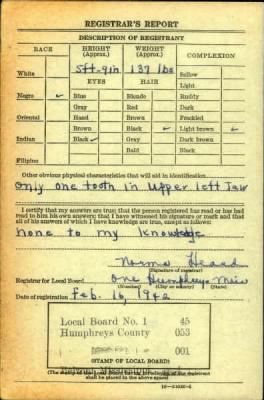 REGISTRAR'S REPORT
DESCRIPTION OF REGISTRANT
RACE HEIGHT (Approx.) WEIGHT (Approx.) COMPLEXION
5ft-9in 137 lbs
White EYES HAIR Sallow
Light
Negro ✓ Blue Blonde Ruddy
Gray Red Dark
Oriental Hazel Brown Freckled
Brown Black ✓ Light brown ✓
Indian Black ✓ Gray Dark brown
Bald Black
Filipino
Other obvious physical characteristics that will aid in identification
Only one tooth in upper left Jaw
I certify that my answers are true; that the person registered has read or has had
read to him his own answers; that I have witnessed his signature or mark and that
all of his answers of which I have knowledge are true, except as follows:
none to my knowledge
Norma
(Signature of registrar)
Registrar for Local Board one Humphreys Miss
(Number) (City or county) (State)
Date of registration Feb. 16, 1942
Local Board No. 1 45
Humphreys County 053
001
(STAMP OF LOCAL BOARD)
(The stamp of the Local Board having jurisdiction of the registrant
shall be placed in the above space)